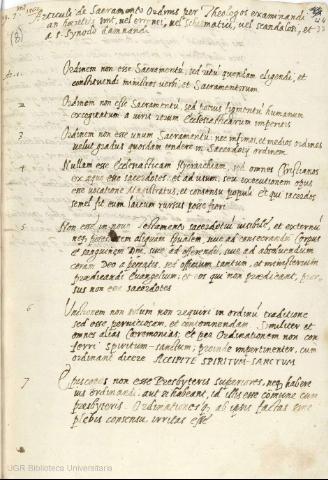 Articuli de Sacramento Ordinis per Theologos examinandi
an hæretici sint, vel erronei, vel schismatici, vel scandalosi, et
a s. synodo damnandi
(8)
Ar. 1. Ordinem non esse Sacramentũ, sed ritũ quendam eligendi, et
constituendi ministros verbi, et Sacramentorum
2 Ordinem non esse Sacramentũ, sed potius figmentũ humanum
excogitatum a viris rerum Ecclesiasticarum imperitis
3 Ordinem non esse unum Sacramentũ: nec infimos, et medios ordines
velut gradus quosdam tendere in Sacerdotij ordinem
4 Nullam esse Ecclesiasticam Hyerarchiam, sed omnes Christianos
ex æquo esse sacerdotes: et ad usum, seu executionem opus
esse vocatione Magistratus, et consensu populi. Et qui sacerdos
semel fit eum laicum rursus posse fieri
5 Non esse in novo Testamento sacerdotiũ visibile, et externũ
neq potestatem aliquam spũalem, sive ad consecrandũ Corpus
et sanguinem Dñi, sive ad offerendũ, sive ad absolvendum
coram Deo a peccatis, sed officium tantum, et ministerium
prædicandi Evangelium; et eos qui non prædicant, pror,
sus non esse sacerdotes
6 Unctionem non solum non requiri in ordinũ traditione
sed esse perniciosam, et contemnendam. Similiter et
omnes alias Cæremonias; et per Ordinationem non con
ferri Spiritum-sanctum; proinde impertinenter, cum
ordinant dicere ACCIPITE SPIRITUM-SANCTUM
7 Episcopos non esse Presbyteris superiores, neq habere
ius ordinandi, aut si habeant, id illis esse comune cum
presbyteris. Ordinationesq ab ipsis factas sine
plebis consensu irritas esse
UGR Biblioteca Universitaria